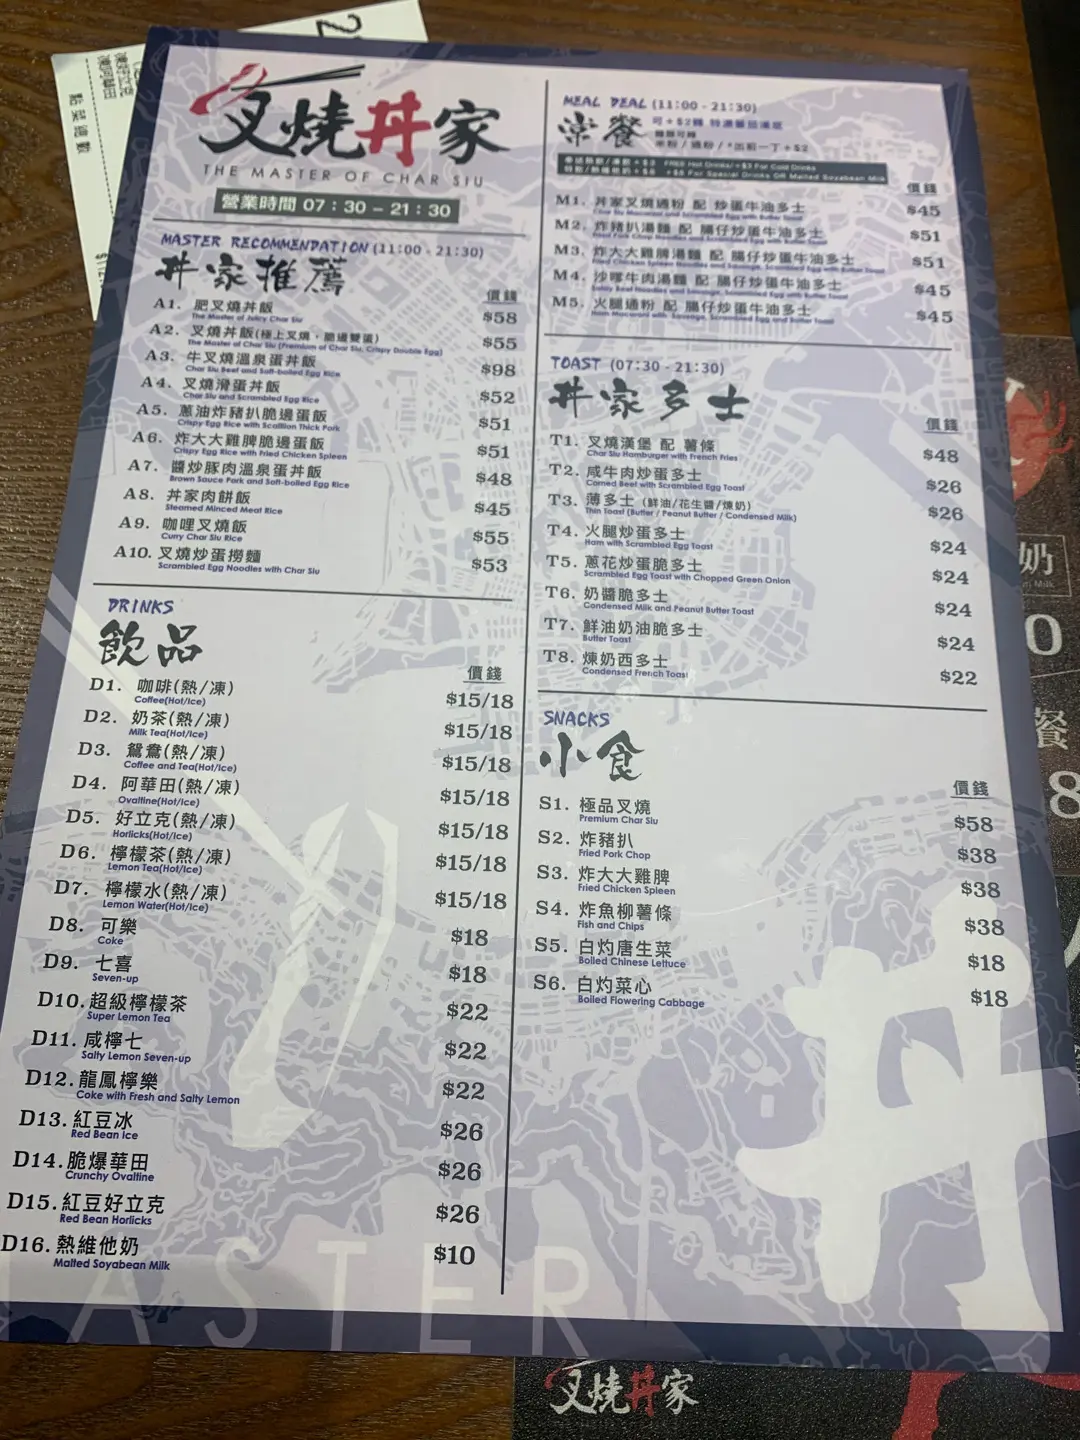 叉燒丼家
THE MASTER OF CHAR SIU
營業時間 07：30 – 21：30
MASTER RECOMMENDATION (11:00 - 21:30)
丼家推薦
價錢
A1. 肥叉燒丼飯 $58
The Master of Juicy Char Siu
A2. 叉燒丼飯(極上叉燒，脆邊雙蛋) $55
The Master of Char Siu (Premium of Char Siu, Crispy Double Egg)
A3. 牛叉燒溫泉蛋丼飯 $98
Char Siu Beef and Soft-boiled Egg Rice
A4. 叉燒滑蛋丼飯 $52
Char Siu and Scrambled Egg Rice
A5. 蔥油炸豬扒脆邊蛋飯 $51
Crispy Egg Rice with Scallion Thick Pork
A6. 炸大大雞脾脆邊蛋飯 $51
Crispy Egg Rice with Fried Chicken Spleen
A7. 醬炒豚肉溫泉蛋丼飯 $48
Brown Sauce Pork and Soft-boiled Egg Rice
A8. 丼家肉餅飯 $45
Steamed Minced Meat Rice
A9. 咖哩叉燒飯 $55
Curry Char Siu Rice
A10. 叉燒炒蛋撈麵 $53
Scrambled Egg Noodles with Char Siu
DRINKS
飲品
價錢
D1. 咖啡(熱/凍) $15/18
Coffee(Hot/Ice)
D2. 奶茶(熱/凍) $15/18
Milk Tea(Hot/Ice)
D3. 鴛鴦(熱/凍) $15/18
Coffee and Tea(Hot/Ice)
D4. 阿華田(熱/凍) $15/18
Ovaltine(Hot/Ice)
D5. 好立克(熱/凍) $15/18
Horlicks(Hot/Ice)
D6. 檸檬茶(熱/凍) $15/18
Lemon Tea(Hot/Ice)
D7. 檸檬水(熱/凍) $15/18
Lemon Water(Hot/Ice)
D8. 可樂 $18
Coke
D9. 七喜 $18
Seven-up
D10. 超級檸檬茶 $22
Super Lemon Tea
D11. 咸檸七 $22
Salty Lemon Seven-up
D12. 龍鳳檸樂 $22
Coke with Fresh and Salty Lemon
D13. 紅豆冰 $26
Red Bean Ice
D14. 脆爆華田 $26
Crunchy Ovaltine
D15. 紅豆好立克 $26
Red Bean Horlicks
D16. 熱維他奶 $10
Malted Soyabean Milk
MEAL DEAL (11:00 - 21:30)
常餐 可+$2轉 特濃蕃茄湯底
米粉 / 通粉 / *出前一丁+$2
FREE Hot Drinks/+$3 For Cold Drinks
+$8 For Special Drinks OR Malted Soyabean Milk
價錢
M1. 丼家叉燒通粉 配 炒蛋牛油多士 $45
Char Siu Macaroni and Scrambled Egg with Butter Toast
M2. 炸豬扒湯麵 配 腸仔炒蛋牛油多士 $51
Fried Pork Chop Noodles and Scrambled Egg with Butter Toast
M3. 炸大大雞脾湯麵 配 腸仔炒蛋牛油多士 $51
Fried Chicken Spleen Noodles and Sausage, Scrambled Egg with Butter Toast
M4. 沙嗲牛肉湯麵 配 腸仔炒蛋牛油多士 $45
Satay Beef Noodles and Sausage, Scrambled Egg with Butter Toast
M5. 火腿通粉 配 腸仔炒蛋牛油多士 $45
Ham Macaroni with Sausage, Scrambled Egg and Butter Toast
TOAST (07:30 - 21:30)
丼家多士
價錢
T1. 叉燒漢堡 配 薯條 $48
Char Siu Hamburger with French Fries
T2. 咸牛肉炒蛋多士 $26
Corned Beef with Scrambled Egg Toast
T3. 薄多士 (鮮油/花生醬/煉奶) $26
Thin Toast (Butter / Peanut Butter / Condensed Milk)
T4. 火腿炒蛋多士 $24
Ham with Scrambled Egg Toast
T5. 蔥花炒蛋脆多士 $24
Scrambled Egg Toast with Chopped Green Onion
T6. 奶醬脆多士 $24
Condensed Milk and Peanut Butter Toast
T7. 鮮油奶油脆多士 $24
Butter Toast
T8. 煉奶西多士 $22
Condensed French Toast
SNACKS
小食
價錢
S1. 極品叉燒 $58
Premium Char Siu
S2. 炸豬扒 $38
Fried Pork Chop
S3. 炸大大雞脾 $38
Fried Chicken Spleen
S4. 炸魚柳薯條 $38
Fish and Chips
S5. 白灼唐生菜 $18
Boiled Chinese Lettuce
S6. 白灼菜心 $18
Boiled Flowering Cabbage
丼
ASTER
叉燒丼家
奶
0
餐
8
點菜總數
2